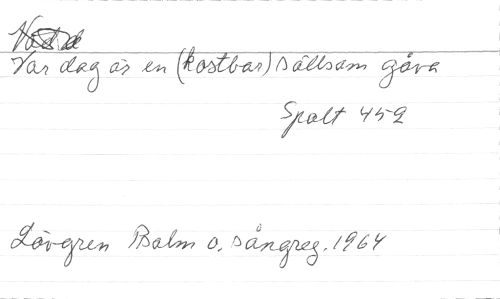 Var dag är en (kostbar) sällsam gåva
Spalt 452
Lövgren Psalm o. sångreg. 1964